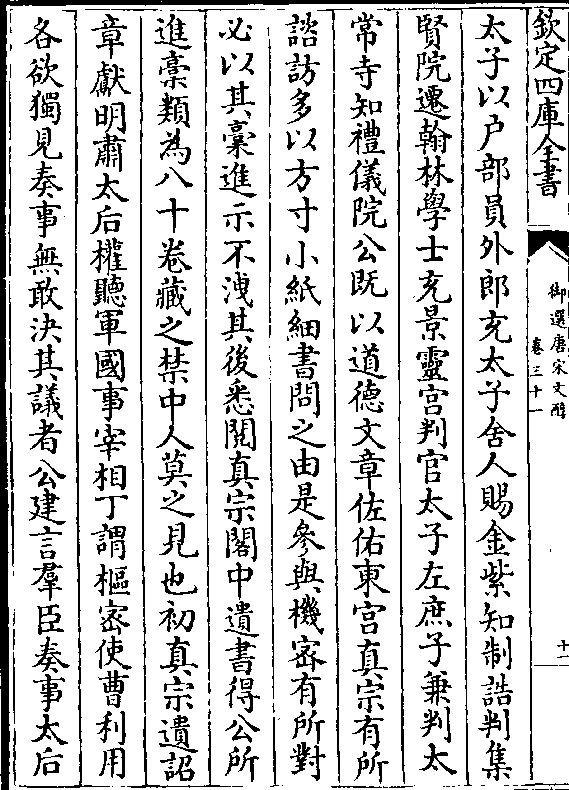 欽定四庫全書
御選唐宋文醇
卷三十一
十一
太子以户部員外郎充太子舍人賜金紫知制誥判集
賢院遷翰林學士充景靈宫判官太子左庶子兼判太
常寺知禮儀院公既以道德文章佐佑東宫真宗有所
諮訪多以方寸小紙細書問之由是參與機宻有所對
必以其藁進示不洩其後悉閱真宗閣中遺書得公所
進藁類為八十卷藏之禁中人莫之見也初真宗遺詔
章獻明肅太后權聽軍國事宰相丁謂樞宻使曹利用
各欲獨見奏事無敢決其議者公建言羣臣奏事太后